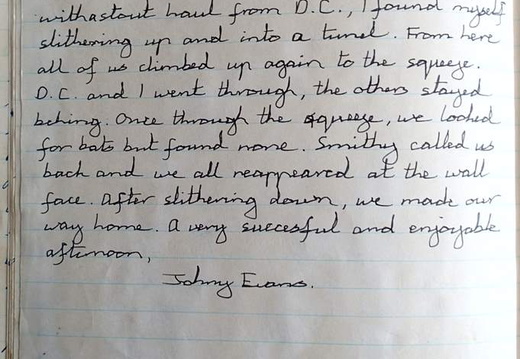 with a stout haul from D.C., I found myself
slithering up and into a tunel. From here
all of us climbed up again to the squeeze.
D.C. and I went through, the others stayed
behing. Once through the squeeze, we looked
for bats but found none. Smithy called us
back and we all reappeared at the wall
face. After slithering down, we made our
way home. A very succesful and enjoyable
afternoon,
Johny Evans.